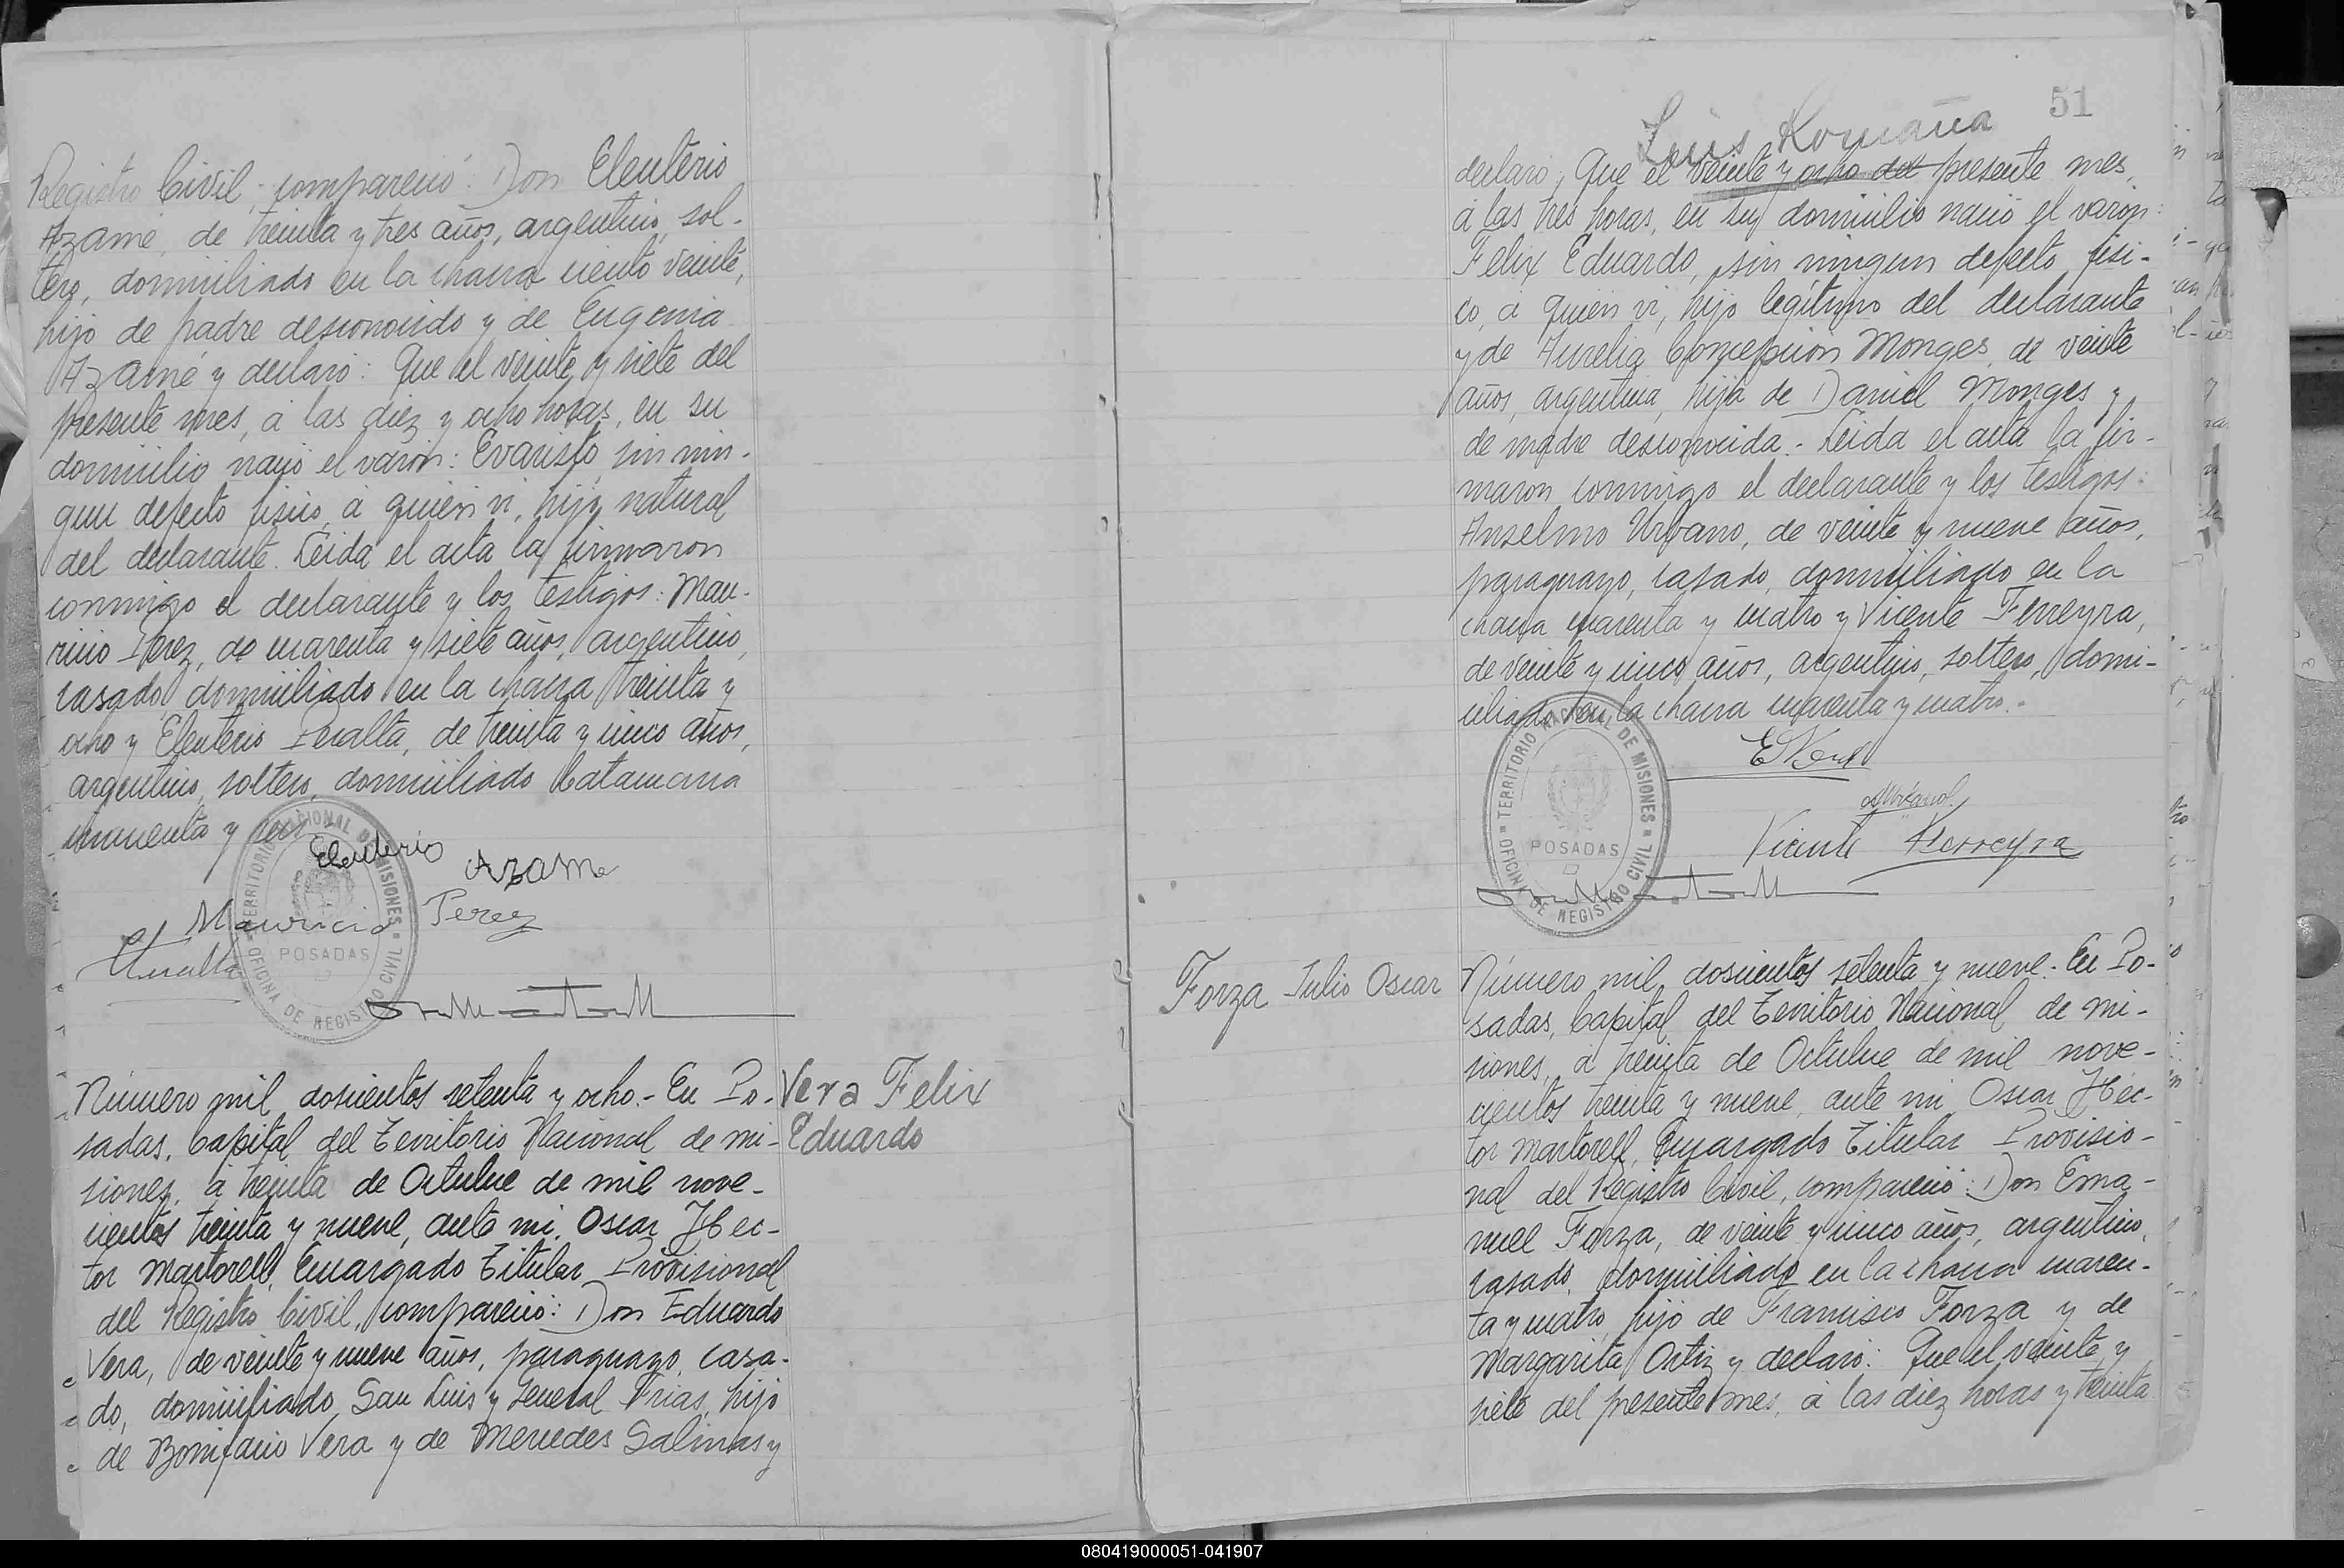 Registro Civil, compareció: Don Eleuterio
Azamé, de treinta y tres años, argentino, sol-
tero, domiciliado en la chacra ciento veinte,
hijo de padre desconocido y de Eugenia
Azamé y declaró: Que el veinte y siete del
presente mes, á las diez y ocho horas, en su
domicilio nació el varón: Evaristo, sin nin-
gun defecto físico, á quién vi, hijo natural
del declarante. Leida el acta la firmaron
conmigo el declarante y los testigos: Mau-
ricio Perez, de cuarenta y siete años, argentino,
casado, domiciliado en la chacra treinta y
ocho y Eleuterio Peralta, de treinta y cinco años,
argentino, soltero, domiciliado Catamarca
cincuenta y seis.-
Eleuterio Azame
Mauricio Perez
El Peralta
TERRITORIO NACIONAL DE MISIONES
POSADAS
OFICINA DE REGISTRO CIVIL
Número mil doscientos setenta y ocho.- En Po-
sadas, Capital del Territorio Nacional de Mi-
siones, á treinta de Octubre de mil nove-
cientos treinta y nueve, ante mi, Oscar Hec-
tor Martorell, Encargado Titular Provisional
del Registro Civil, compareció: Don Eduardo
Vera, de veinte y nueve años, paraguayo, casa-
do, domiciliado San Luis y General Frias, hijo
de Bonifacio Vera y de Mercedes Salinas y
Vera Felix
Eduardo
51
Luis Romaña
declaró; Que el veinte y ocho del presente mes,
á las tres horas, en su domicilio nació el varón:
Felix Eduardo, sin ningun defecto físi-
co, á quién vi, hijo legítimo del declarante
y de Aurelia Concepción Monges, de veinte
años, argentina, hija de Daniel Monges y
de madre desconocida.- Leida el acta la fir-
maron conmigo el declarante y los testigos:
Anselmo Urbano, de veinte y nueve años,
paraguayo, casado, domiciliado en la
chacra cuarenta y cuatro y Vicente Ferreyra,
de veinte y cinco años, argentino, soltero, domi-
ciliado en la chacra cuarenta y cuatro.-
E Vera
Vicente Ferreyra
TERRITORIO NACIONAL DE MISIONES
POSADAS
OFICINA DE REGISTRO CIVIL
Forza Julio Oscar
Número mil doscientos setenta y nueve.- En Po-
sadas, Capital del Territorio Nacional de Mi-
siones, á treinta de Octubre de mil nove-
cientos treinta y nueve, ante mi, Oscar Hec-
tor Martorell, Encargado Titular Provisio-
nal del Registro Civil, compareció: Don Ema-
nuel Forza, de veinte y cinco años, argentino,
casado, domiciliado en la chacra cuaren-
ta y cuatro, hijo de Francisco Forza y de
Margarita Ortiz y declaró: Que el veinte y
siete del presente mes, á las diez horas y treinta
080419000051-041907